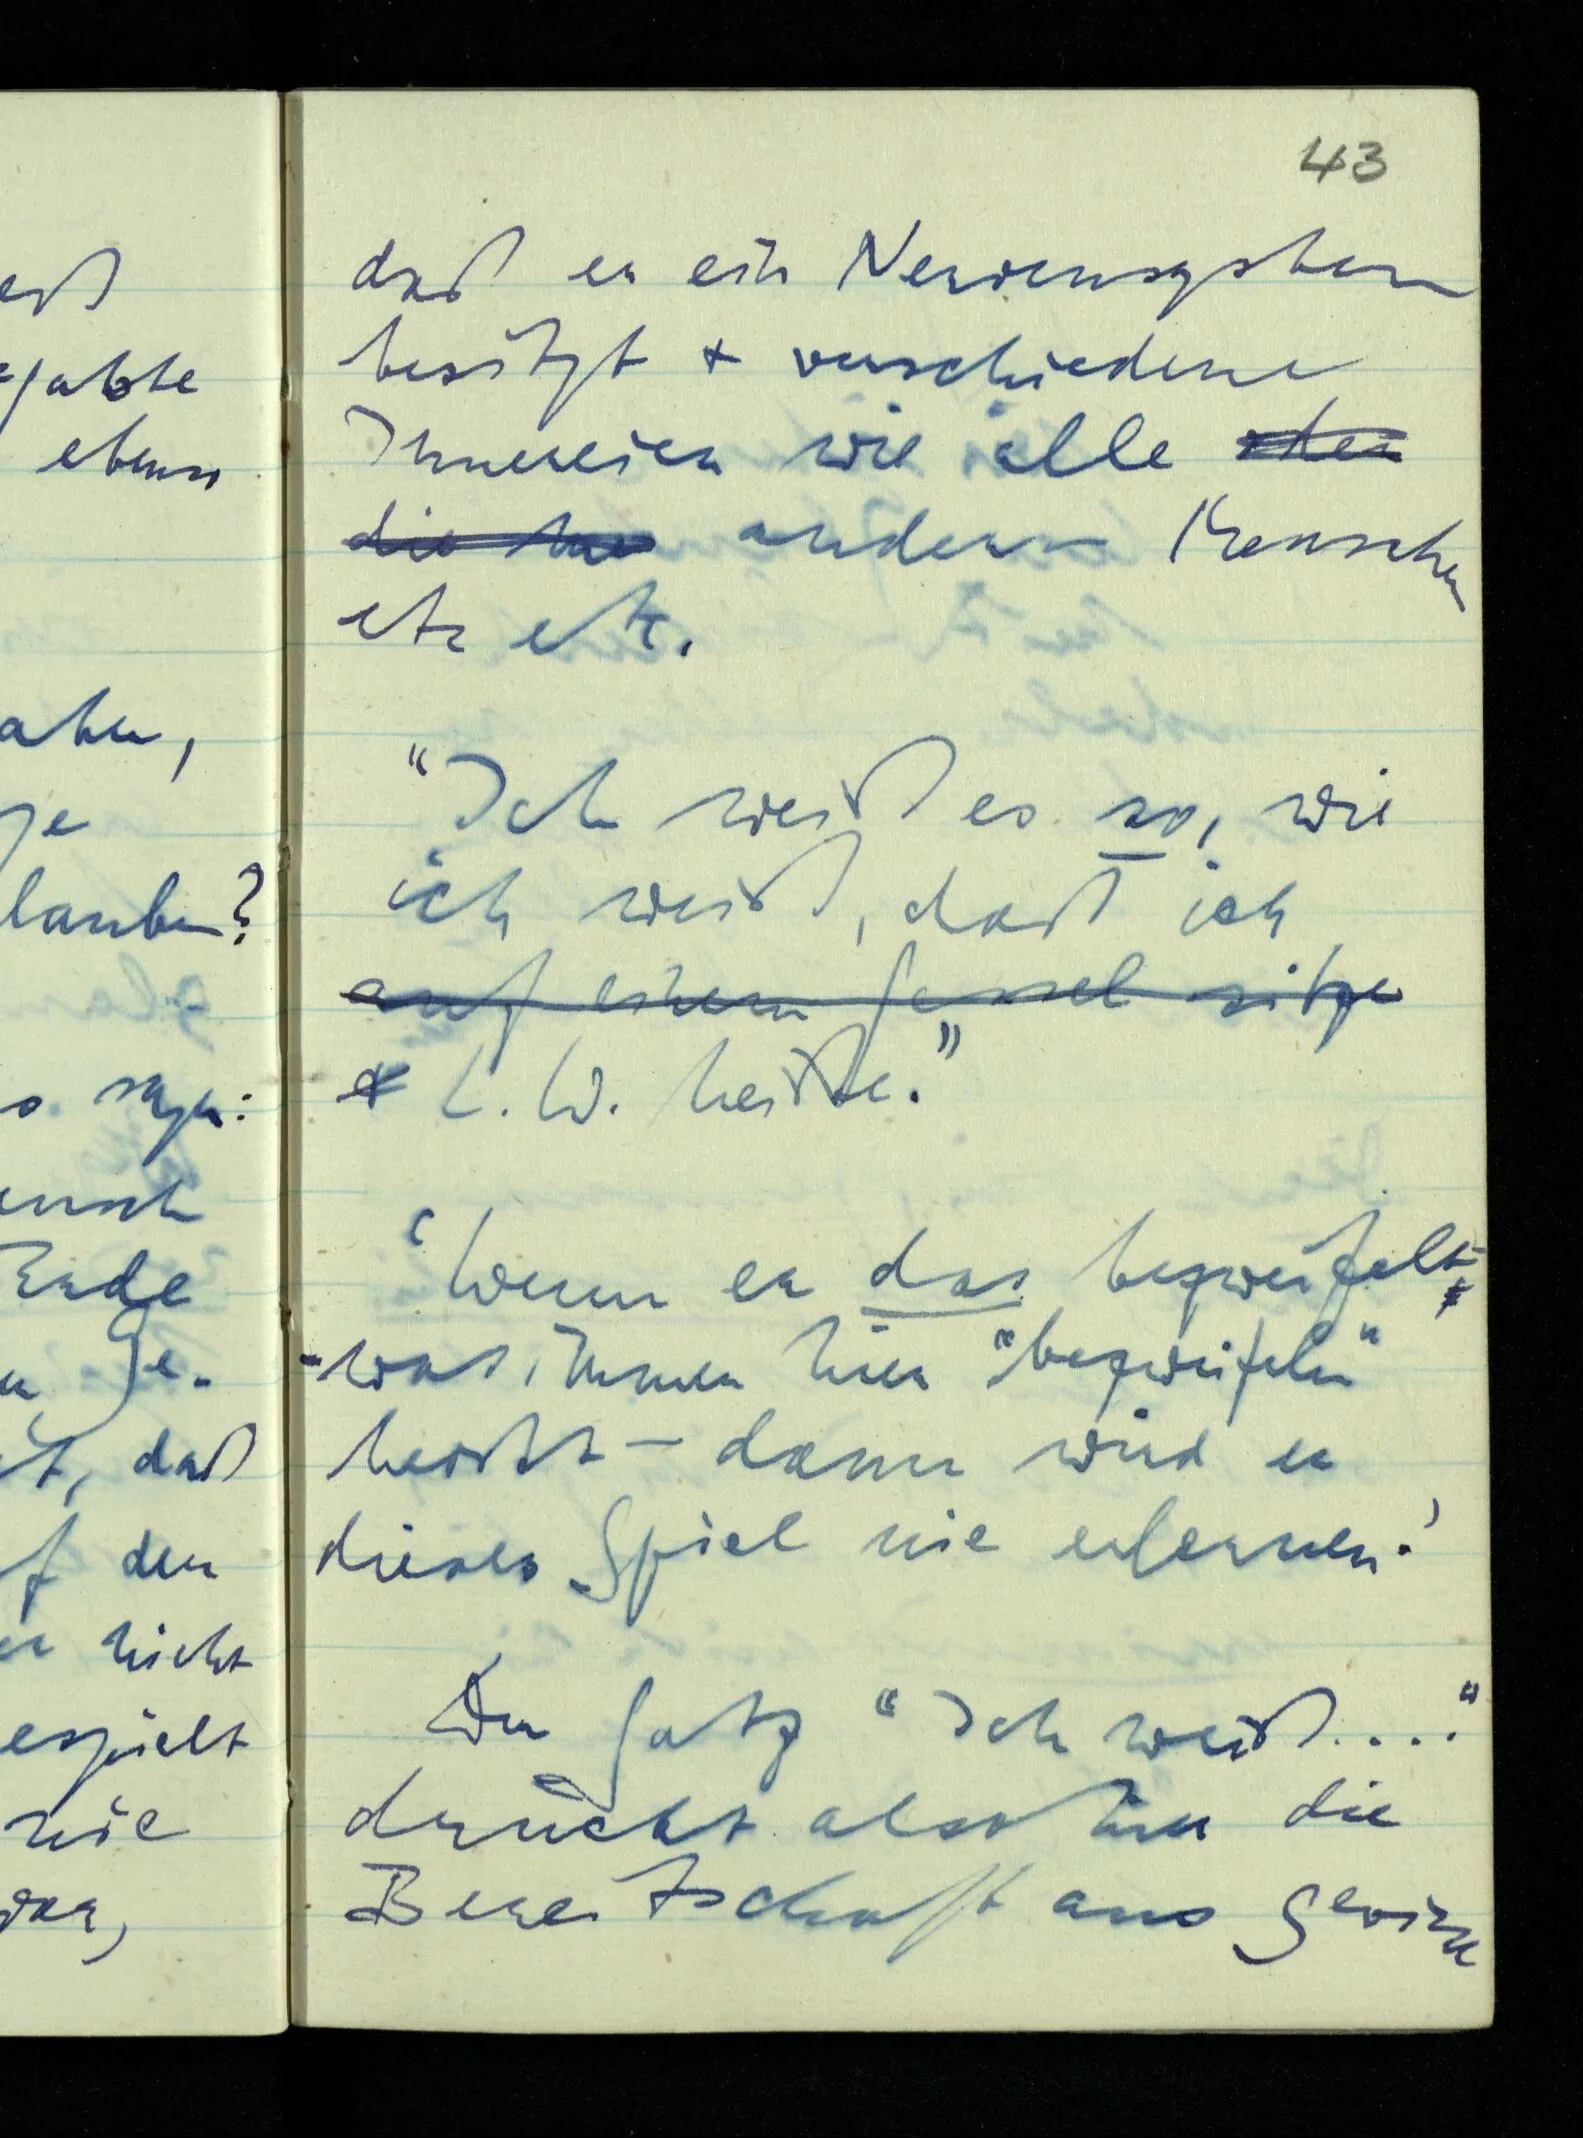 43
eiß
ebenso
aben,
je
lauben?
sagen:
ensch
Erde
Ge-
t, daß
f den
er nicht
espielt
nie
war,
daß er ein Nervensystem
besitzt & verschiedene
Innereien wie alle oder
die andern Menschen
etc etc.
"Ich weiß es so, wie
ich weiß, daß ich
auf einem Sessel sitze
& L.W. heiße."
'Wenn er das bezweifelt
– was immer hier "bezweifeln"
heißt – dann wird er
dieses Spiel nie erlernen.'
Der Satz "Ich weiß...."
drückt also hier die
Bereitschaft aus gewisse